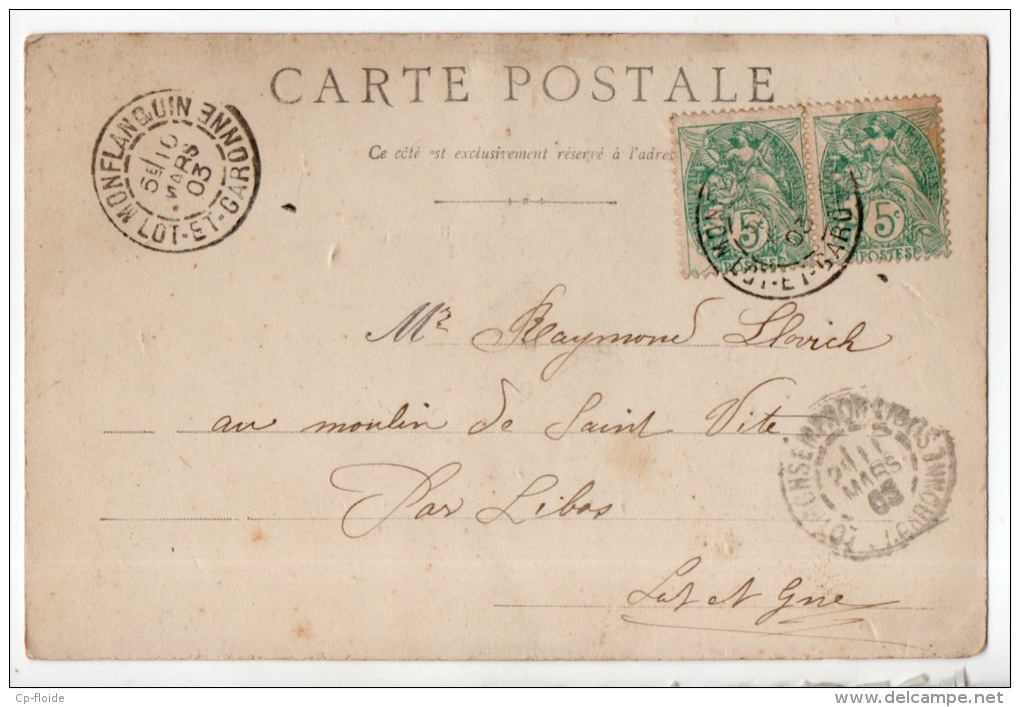 CARTE POSTALE
Ce côté est exclusivement réservé à l'adres
MONFLANQUIN
5E/10
MARS
03
LOT-ET-GARONNE
5c 5c
POSTES POSTES
MON
03
LOT-ET-GARO
Mr Raymond Llovich
au moulin de Saint Vite
Par Libos
Lot et Gne
MONSEMPRON-LIBOS
2E/11
MARS
03
LOT-
Cp-floide
www.delcampe.net